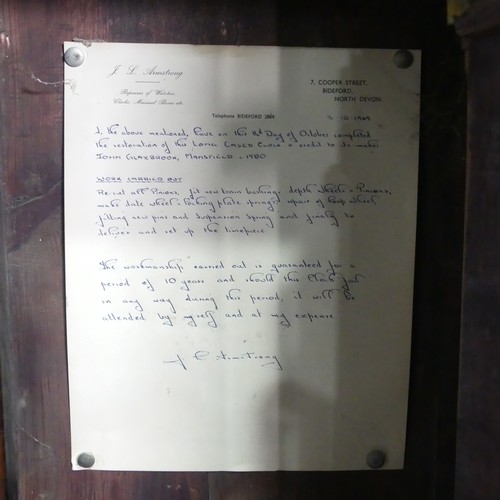 J. L. Armstrong
Repairers of Watches
Clocks Musical Boxes etc.
7, COOPER STREET,
BIDEFORD,
NORTH DEVON.
Telephone BIDEFORD
10 1969
I, the above mentioned, have on this Day of October completed
the restoration of this Long Cased Clock a credit to its maker
JOHN GLAZBROOK, MANSFIELD
WORK CARRIED OUT
Re-cut all Pinions, fit new train bushings, depth wheels & Pinions,
make date wheel, locking plate spring, repair of hoop wheel
fitting new pins and Suspension Spring and finally to
deliver and set up the timepiece
The workmanship carried out is guaranteed for a
period of 10 years and should this Clock fail
in any way during this period, it will be
attended by myself and at my expense
J L Armstrong